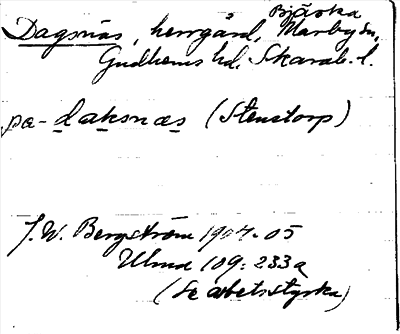 Bjärka
Dagsnäs, herrgård, Marby sn,
Gudhems hd, Skarab. l.
pa- daksnæs (Stenstorp)
J. W. Bergström 1904-05
Ulma 109:233a
(Se arbetsstycka)